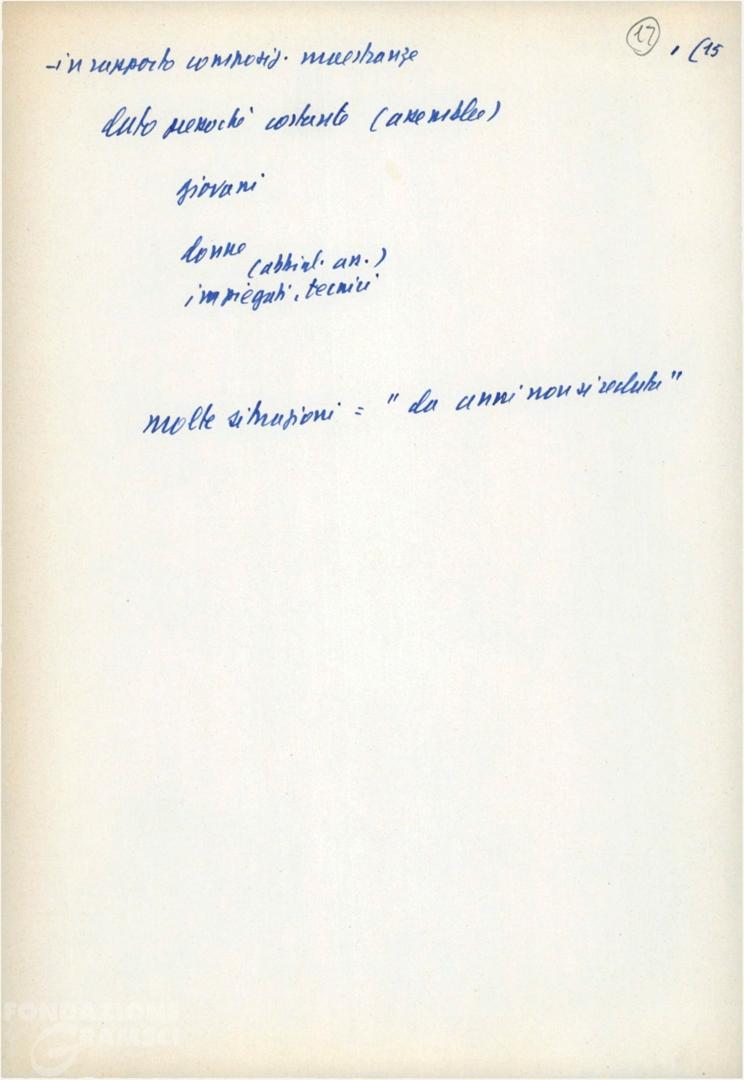 17 , (15
- in rapporto composiz. maestranze
dato pressoché costante (assemblee)
giovani
donne
(abbigl. ecc.)
impiegati, tecnici
molte situazioni = " da anni non si recluta "
FONDAZIONE
GRAMSCI